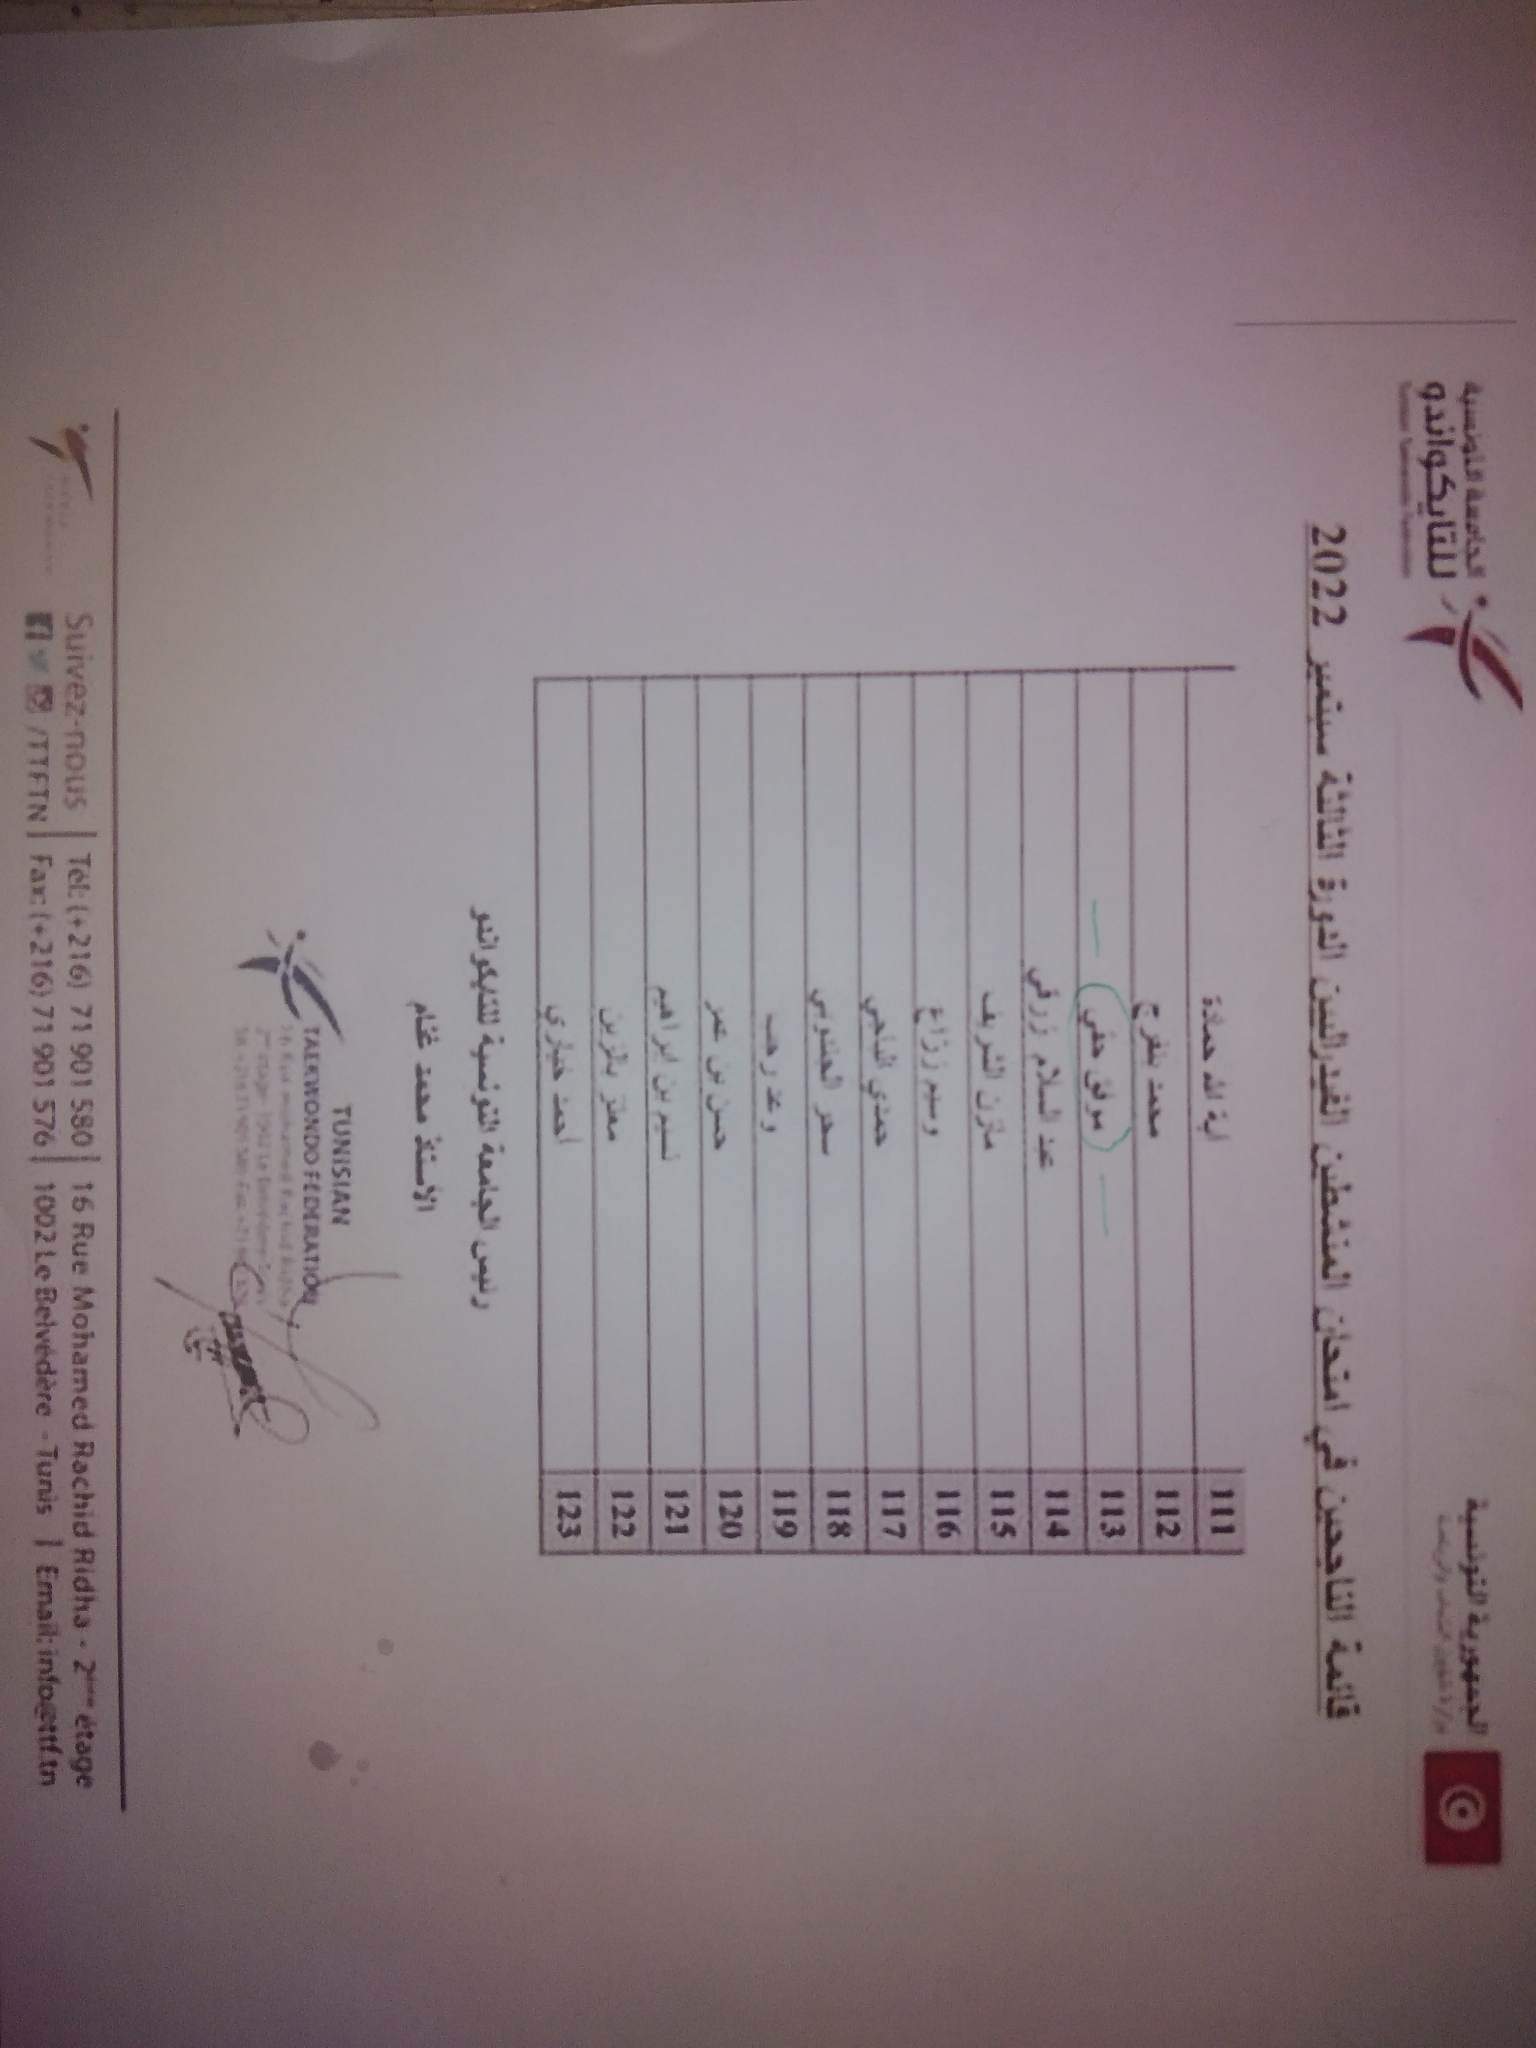 الجامعة التونسية
للتايكواندو
Tunisian Taekwondo Federation
الجمهورية التونسية
قائمة الناجحين في امتحان المنشطين الفيدراليين الدورة الثالثة سبتمبر 2022
111 اية الله حمادة
112 محمد بلفرج
113 موفق حفي
114 عبد السلام زرقي
115 مازن الشريف
116 وسيم زراع
117 حمدي الباجي
118 سحر الجندوبي
119 وعد رجب
120 حسن بن عمر
121 نسيم بن ابراهيم
122 معتز بالزين
123 أحمد خياري
رئيس الجامعة التونسية للتايكواندو
الأستاذ محمد غنام
TUNISIAN
TAEKWONDO FEDERATION
16 Rue mohamed Rachid Ridha
2ème étage - 1002 Le Belvédère
Suivez-nous | Tél: (+216) 71 901 580 | 16 Rue Mohamed Rachid Ridha - 2ème étage
/TTFTN | Fax: (+216) 71 901 576 | 1002 Le Belvédère - Tunis | Email: info@ttf.tn